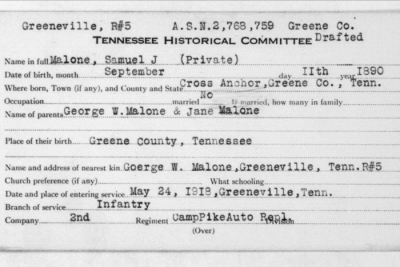 Greeneville, R#5 A.S.N.2,768,759 Greene Co.
TENNESSEE HISTORICAL COMMITTEE Drafted
Name in full Malone, Samuel J (Private)
Date of birth, month September day 11th year 1890
Where born, Town (if any), and County and State Cross Anchor, Greene Co., Tenn.
Occupation married No If married, how many in family
Name of parents George W. Malone & Jane Malone
Place of their birth Greene County, Tennessee
Name and address of nearest kin Goerge W. Malone, Greeneville, Tenn. R#5
Church preference (if any) What schooling
Date and place of entering service May 24, 1918, Greeneville, Tenn.
Branch of service Infantry
Company 2nd Regiment CampPikeAuto Repl. Division
(Over)